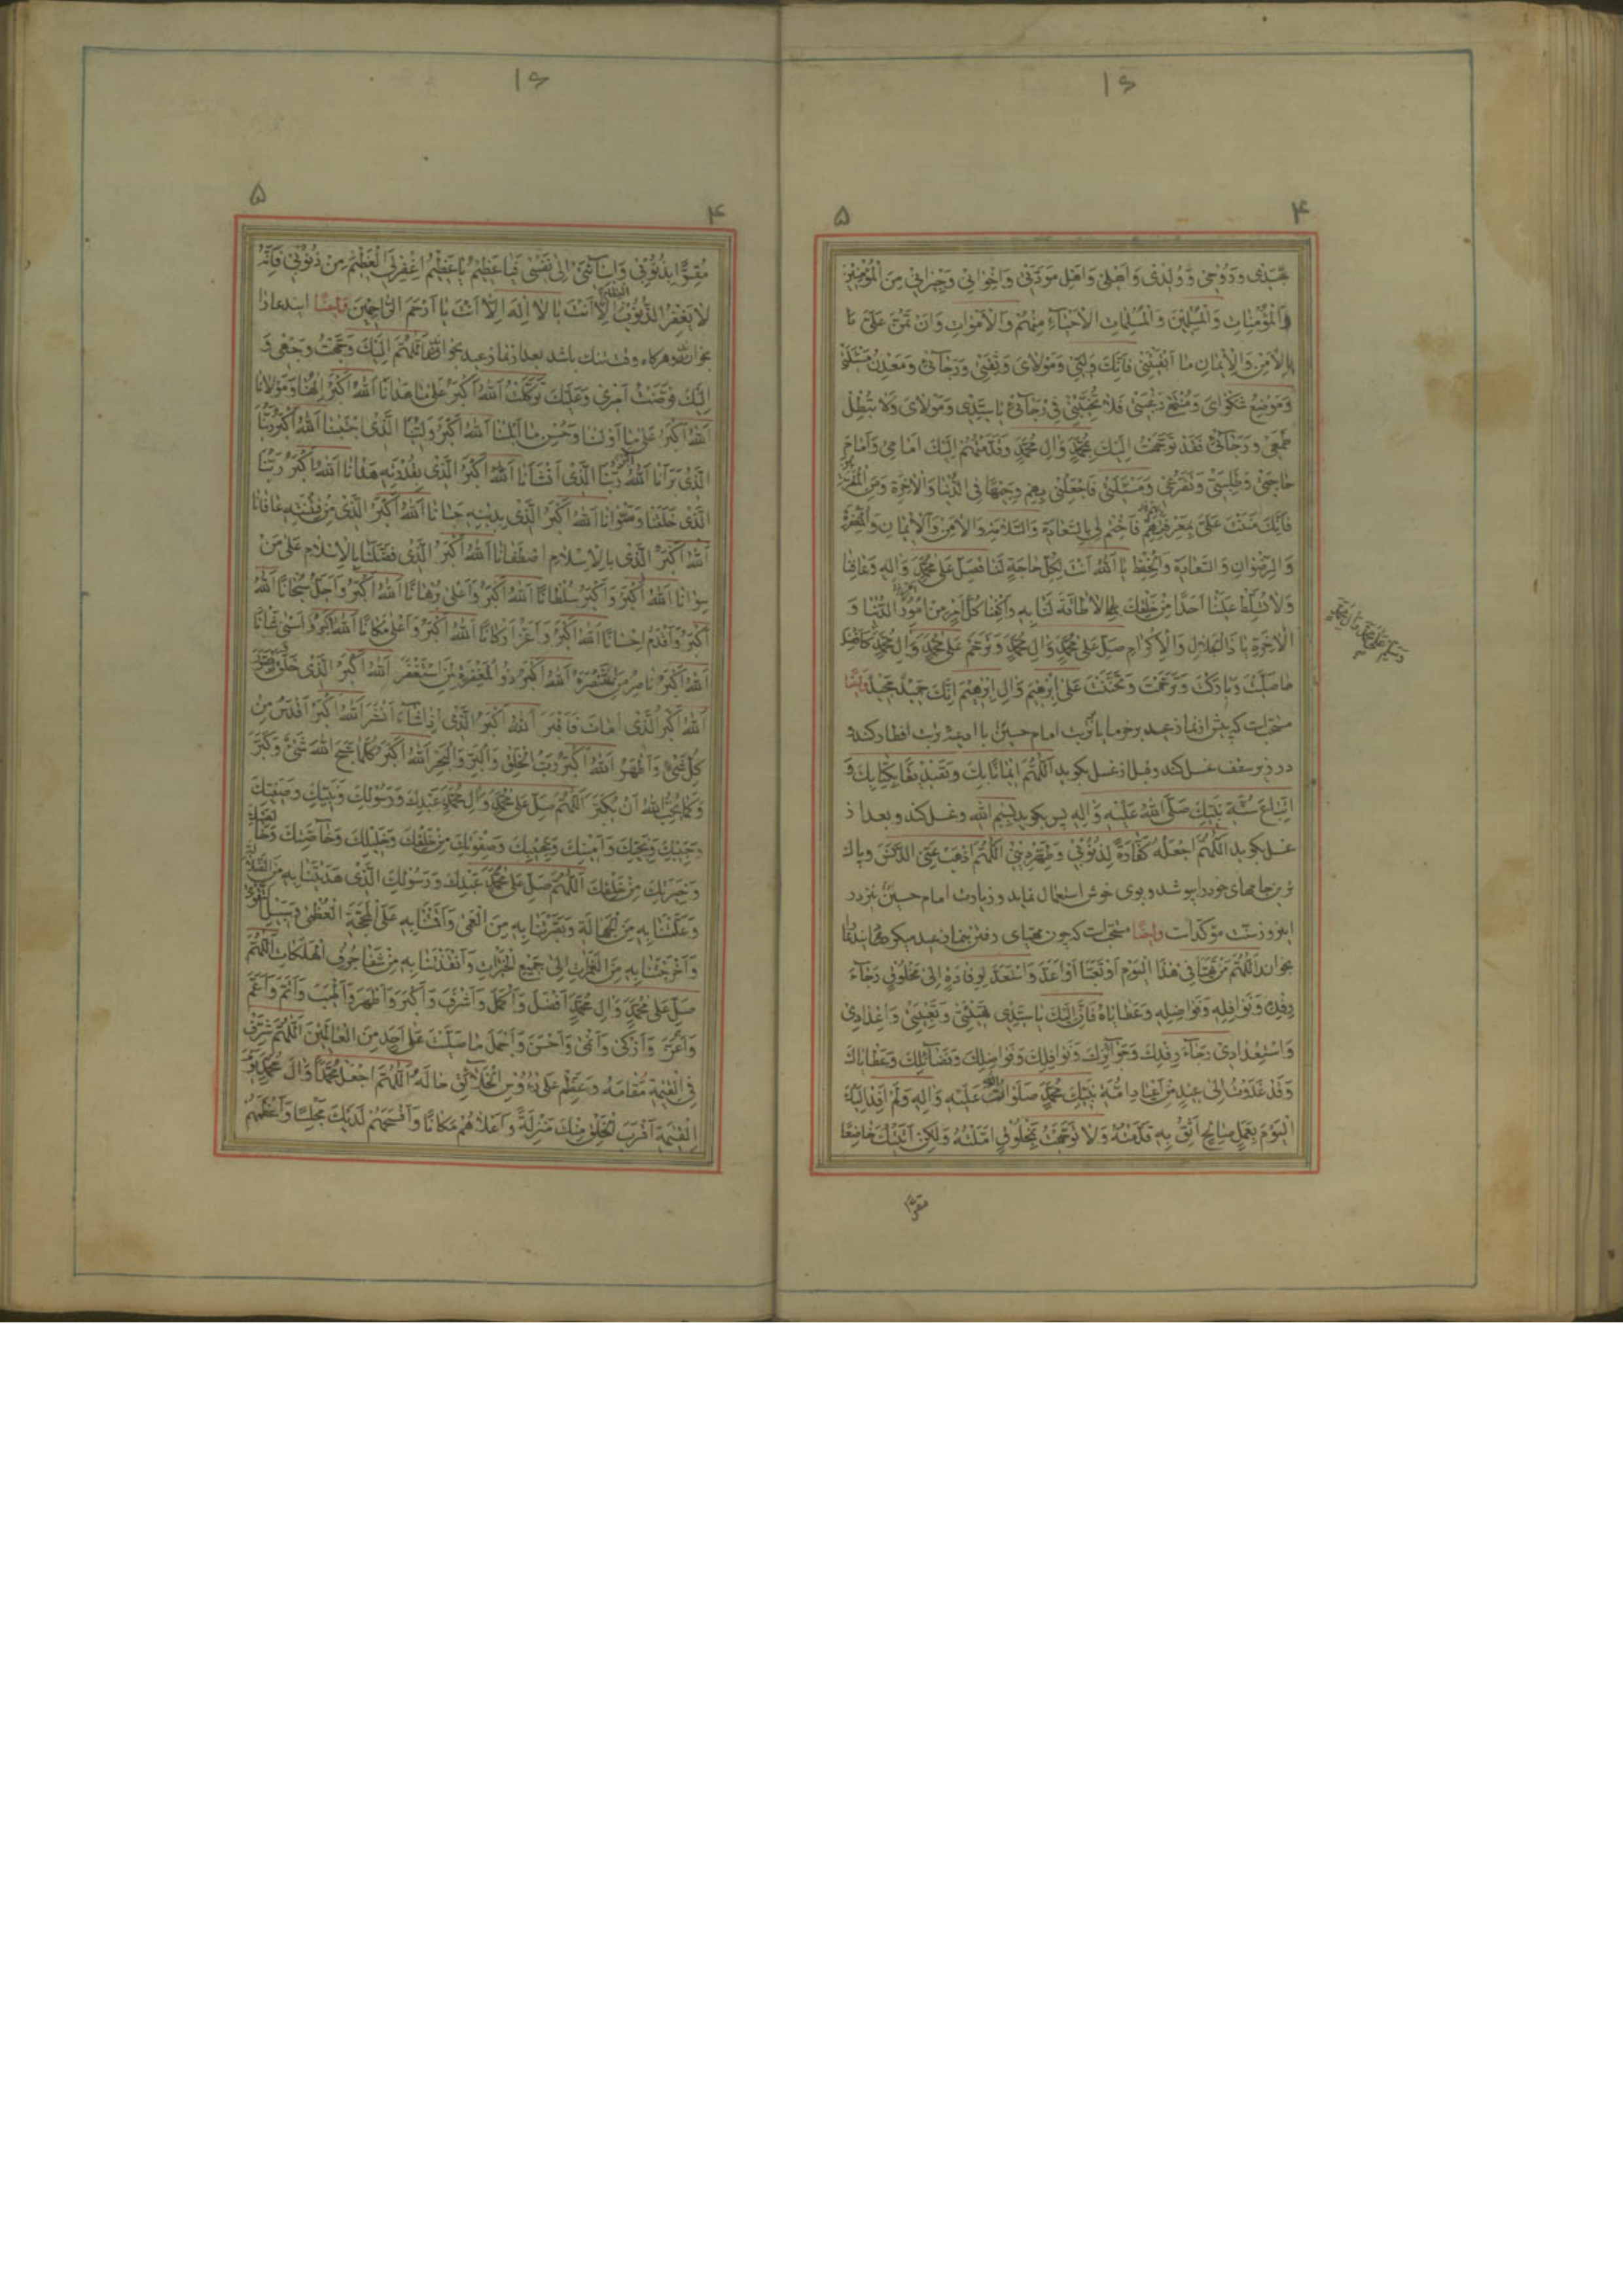 ۱۶
۴
۵
وَرُوحی وَوُلْدی وَاَهْلی وَاَهْلِ مَوَدَّتی وَاِخْوانی وَجیرانی مِنَ الْمُؤْمِنینَ
وَالْمُؤْمِناتِ وَالْمُسْلِمینَ وَالْمُسْلِماتِ الْاَحْیاءِ مِنْهُمْ وَالْاَمْواتِ وَاَنْ تَمُنَّ عَلَیَّ
بِالْاَمْنِ وَالْایمانِ ما اَبْقَیْتَنی فَاِنَّكَ وَلِیّی وَمَوْلایَ وَثِقَتی وَرَجائی وَمَعْدِنُ مَسْئَلَتی
وَمَوْضِعُ شَکْوایَ وَمُنْتَهی رَغْبَتی فَلا تُخَیِّبْنی فی رَجائی یا سَیِّدی وَمَوْلایَ وَلا تُبْطِلْ
طَمَعی وَرَجائی فَقَدْ تَوَجَّهْتُ اِلَیْكَ بِمُحَمَّدٍ وَالِ مُحَمَّدٍ وَقَدَّمْتُهُمْ اِلَیْكَ اَمامی وَاَمامَ
حاجَتی وَطَلِبَتی وَتَضَرُّعی وَمَسْئَلَتی فَاجْعَلْنی بِهِمْ وَجیهًا فِی الدُّنْیا وَالْاخِرَةِ وَمِنَ الْمُقَرَّبینَ
فَاِنَّكَ مَنَنْتَ عَلَیَّ بِمَعْرِفَتِهِمْ فَاخْتِمْ لی بِالسَّعادَةِ وَالسَّلامَةِ وَالْاَمْنِ وَالْایمانِ وَالْمَغْفِرَةِ
وَالرِّضْوانِ وَالسَّعادَةِ وَالْحِفْظِ یا اَللّٰهُ اَنْتَ لِکُلِّ حاجَةٍ لَنا فَصَلِّ عَلی مُحَمَّدٍ وَالِهِ وَعافِنا
وَلا تُسَلِّطْ عَلَیْنا اَحَدًا مِنْ خَلْقِكَ لا طاقَةَ لَنا بِهِ وَاکْفِنا کُلَّ اَمْرٍ مِنْ اُمُورِ الدُّنْیا وَ
الْاخِرَةِ یا ذَاالْجَلالِ وَالْاِکْرامِ صَلِّ عَلی مُحَمَّدٍ وَالِ مُحَمَّدٍ وَتَرَحَّمْ عَلی مُحَمَّدٍ وَالِ مُحَمَّدٍ کَاَفْضَلِ
ما صَلَّیْتَ وَبارَکْتَ وَتَرَحَّمْتَ وَتَحَنَّنْتَ عَلی اِبْرهیمَ وَالِ اِبْرهیمَ اِنَّكَ حَمیدٌ مَجیدٌ وایضًا
مستحبّ است که پیش از نماز عید بخرما یا تربت امام حسین افطار کند و
در زیر سقف غسل کند و قبل از غسل بگوید اَللّٰهُمَّ ایمانًا بِكَ وَتَصْدیقًا بِکِتابِكَ وَ
اتِّباعَ سُنَّةِ نَبِیِّكَ صَلَّی اللّٰهُ عَلَیْهِ وَالِهِ پس بگوید بِسْمِ اللّٰه و غسل کند و بعد از
غسل بگوید اَللّٰهُمَّ اجْعَلْهُ کَفّارَةً لِذُنُوبی وَطَهِّرْ دینی اَللّٰهُمَّ اَذْهِبْ عَنِّی الدَّنَسَ و پاك
ترین جامهای خود را بپوشد و بوی خوش استعمال نماید و زیارت امام حسین در
این روز سنّت مؤکّد است وایضًا مستحبّ است که چون مهیّای رفتن بنماز عید
بخواند اَللّٰهُمَّ مَنْ تَهَیَّاَ فی هذَا الْیَوْمِ اَوْ تَعَبَّاَ اَوْ اَعَدَّ وَاسْتَعَدَّ لِوِفادَةٍ اِلی مَخْلُوقٍ رَجاءَ
رِفْدِهِ وَنَوافِلِهِ وَفَواضِلِهِ وَعَطایاهُ فَاِنَّ اِلَیْكَ یا سَیِّدی تَهْیِئَتی وَتَعْبِئَتی وَاِعْدادی
وَاسْتِعْدادی رَجاءَ رِفْدِكَ وَجَوائِزِكَ وَنَوافِلِكَ وَفَواضِلِكَ وَفَضائِلِكَ وَعَطایاكَ
وَقَدْ غَدَوْتُ اِلی عیدٍ مِنْ اَعْیادِ اُمَّةِ نَبِیِّكَ مُحَمَّدٍ صَلَواتُ اللّٰهِ عَلَیْهِ وَالِهِ وَلَمْ اَفِدْ اِلَیْكَ
الْیَوْمَ بِعَمَلٍ صالِحٍ اَثِقُ بِهِ قَدَّمْتُهُ وَلا تَوَجَّهْتُ بِمَخْلُوقٍ اَمَّلْتُهُ وَلکِنْ اَتَیْتُكَ خاضِعًا
مقرًّا
۱۶
۴
۵
مُقِرًّا بِذُنُوبی وَاِسائَتی اِلی نَفْسی فَیا عَظیمُ یا عَظیمُ اِغْفِرْ لِیَ الْعَظیمَ مِنْ ذُنُوبی فَاِنَّهُ
لا یَغْفِرُ الذُّنُوبَ الْعِظامَ اِلّا اَنْتَ یا لا اِلهَ اِلّا اَنْتَ یا اَرْحَمَ الرّاحِمینَ وایضًا این دعا را
بخواند و هرگاه وقت تنك باشد بعد از نماز عید بخواند اَللّٰهُمَّ اِلَیْكَ وَجَّهْتُ وَجْهی وَ
اِلَیْكَ فَوَّضْتُ اَمْری وَعَلَیْكَ تَوَکَّلْتُ اَللّٰهُ اَکْبَرُ عَلی ما هَدانا اَللّٰهُ اَکْبَرُ اِلهُنا وَمَوْلانا
اَللّٰهُ اَکْبَرُ عَلی ما اَوْلانا وَحُسْنِ ما اَبْلانا اَللّٰهُ اَکْبَرُ وَلِیُّنَا الَّذی اجْتَبانا اَللّٰهُ اَکْبَرُ رَبُّنَا
الَّذی بَرَانا اَللّٰهُ اَکْبَرُ رَبُّنَا الَّذی اَنْشَانا اَللّٰهُ اَکْبَرُ الَّذی بِقُدْرَتِهِ هَدانا اَللّٰهُ اَکْبَرُ رَبُّنَا
الَّذی خَلَقَنا وَسَوّانا اَللّٰهُ اَکْبَرُ الَّذی بِدینِهِ حَبانا اَللّٰهُ اَکْبَرُ الَّذی مِنْ فِتْنَتِهِ عافانا
اَللّٰهُ اَکْبَرُ الَّذی بِالْاِسْلامِ اصْطَفانا اَللّٰهُ اَکْبَرُ الَّذی فَضَّلَنا بِالْاِسْلامِ عَلی مَنْ
سِوانا اَللّٰهُ اَکْبَرُ وَاَکْبَرُ سُلْطانًا اَللّٰهُ اَکْبَرُ وَاَعْلی بُرْهانًا اَللّٰهُ اَکْبَرُ وَاَجَلُّ سُبْحانًا اَللّٰهُ
اَکْبَرُ وَاَقْدَمُ اِحْسانًا اَللّٰهُ اَکْبَرُ وَاَعَزُّ اَرْکانًا اَللّٰهُ اَکْبَرُ وَاَعْلی مَکانًا اَللّٰهُ اَکْبَرُ وَاَسْنی شَانًا
اَللّٰهُ اَکْبَرُ ناصِرُ مَنِ اسْتَنْصَرَ اَللّٰهُ اَکْبَرُ ذُو الْمَغْفِرَةِ لِمَنِ اسْتَغْفَرَ اَللّٰهُ اَکْبَرُ الَّذی خَلَقَ وَصَوَّرَ
اَللّٰهُ اَکْبَرُ الَّذی اَماتَ فَاَقْبَرَ اَللّٰهُ اَکْبَرُ الَّذی اِذا شاءَ اَنْشَرَ اَللّٰهُ اَکْبَرُ اَقْدَسُ مِنْ
کُلِّ شَیْءٍ وَاَطْهَرُ اَللّٰهُ اَکْبَرُ رَبُّ الْخَلْقِ وَالْبَرِّ وَالْبَحْرِ اَللّٰهُ اَکْبَرُ کُلَّما سَبَّحَ اللّٰهَ شَیْءٌ وَکَبَّرَ
وَکَما یُحِبُّ اللّٰهُ اَنْ یُکَبَّرَ اَللّٰهُمَّ صَلِّ عَلی مُحَمَّدٍ وَالِ مُحَمَّدٍ عَبْدِكَ وَرَسُولِكَ وَنَبِیِّكَ وَصَفِیِّكَ
وَحَبیبِكَ وَنَجِیِّكَ وَاَمینِكَ وَنَجیبِكَ وَصَفْوَتِكَ مِنْ خَلْقِكَ وَخَلیلِكَ وَخاصَّتِكَ
وَخِیَرَتِكَ مِنْ خَلْقِكَ اَللّٰهُمَّ صَلِّ عَلی مُحَمَّدٍ عَبْدِكَ وَرَسُولِكَ الَّذی هَدَیْتَنا بِهِ مِنَ الضَّلالَةِ
وَعَلَّمْتَنا بِهِ مِنَ الْجَهالَةِ وَبَصَّرْتَنا بِهِ مِنَ الْعَمی وَاَقَمْتَنا بِهِ عَلَی الْمَحَجَّةِ الْعُظْمی وَسَبیلِ التَّقْوی
وَاَخْرَجْتَنا بِهِ مِنَ الْغَمَراتِ اِلی جَمیعِ الْخَیْراتِ وَاَنْقَذْتَنا بِهِ مِنْ شَفا جُرُفِ الْهَلَکاتِ اَللّٰهُمَّ
صَلِّ عَلی مُحَمَّدٍ وَالِ مُحَمَّدٍ اَفْضَلَ وَاَکْمَلَ وَاَشْرَفَ وَاَکْبَرَ وَاَطْهَرَ وَاَطْیَبَ وَاَتَمَّ وَاَعَمَّ
وَاَعَزَّ وَاَزْکی وَاَنْمی وَاَحْسَنَ وَاَجْمَلَ ما صَلَّیْتَ عَلی اَحَدٍ مِنَ الْعالَمینَ اَللّٰهُمَّ شَرِّفْ
فِی الْقِیٰمَةِ مَقامَهُ وَعَظِّمْ عَلی رُءُوسِ الْخَلائِقِ حالَهُ اَللّٰهُمَّ اجْعَلْ مُحَمَّدًا وَالَ مُحَمَّدٍ یَوْمَ
الْقِیٰمَةِ اَقْرَبَ الْخَلْقِ مِنْكَ مَنْزِلَةً وَاَعْلاهُمْ مَکانًا وَاَفْسَحَهُمْ لَدَیْكَ مَجْلِسًا وَاَعْظَمَهُمْ